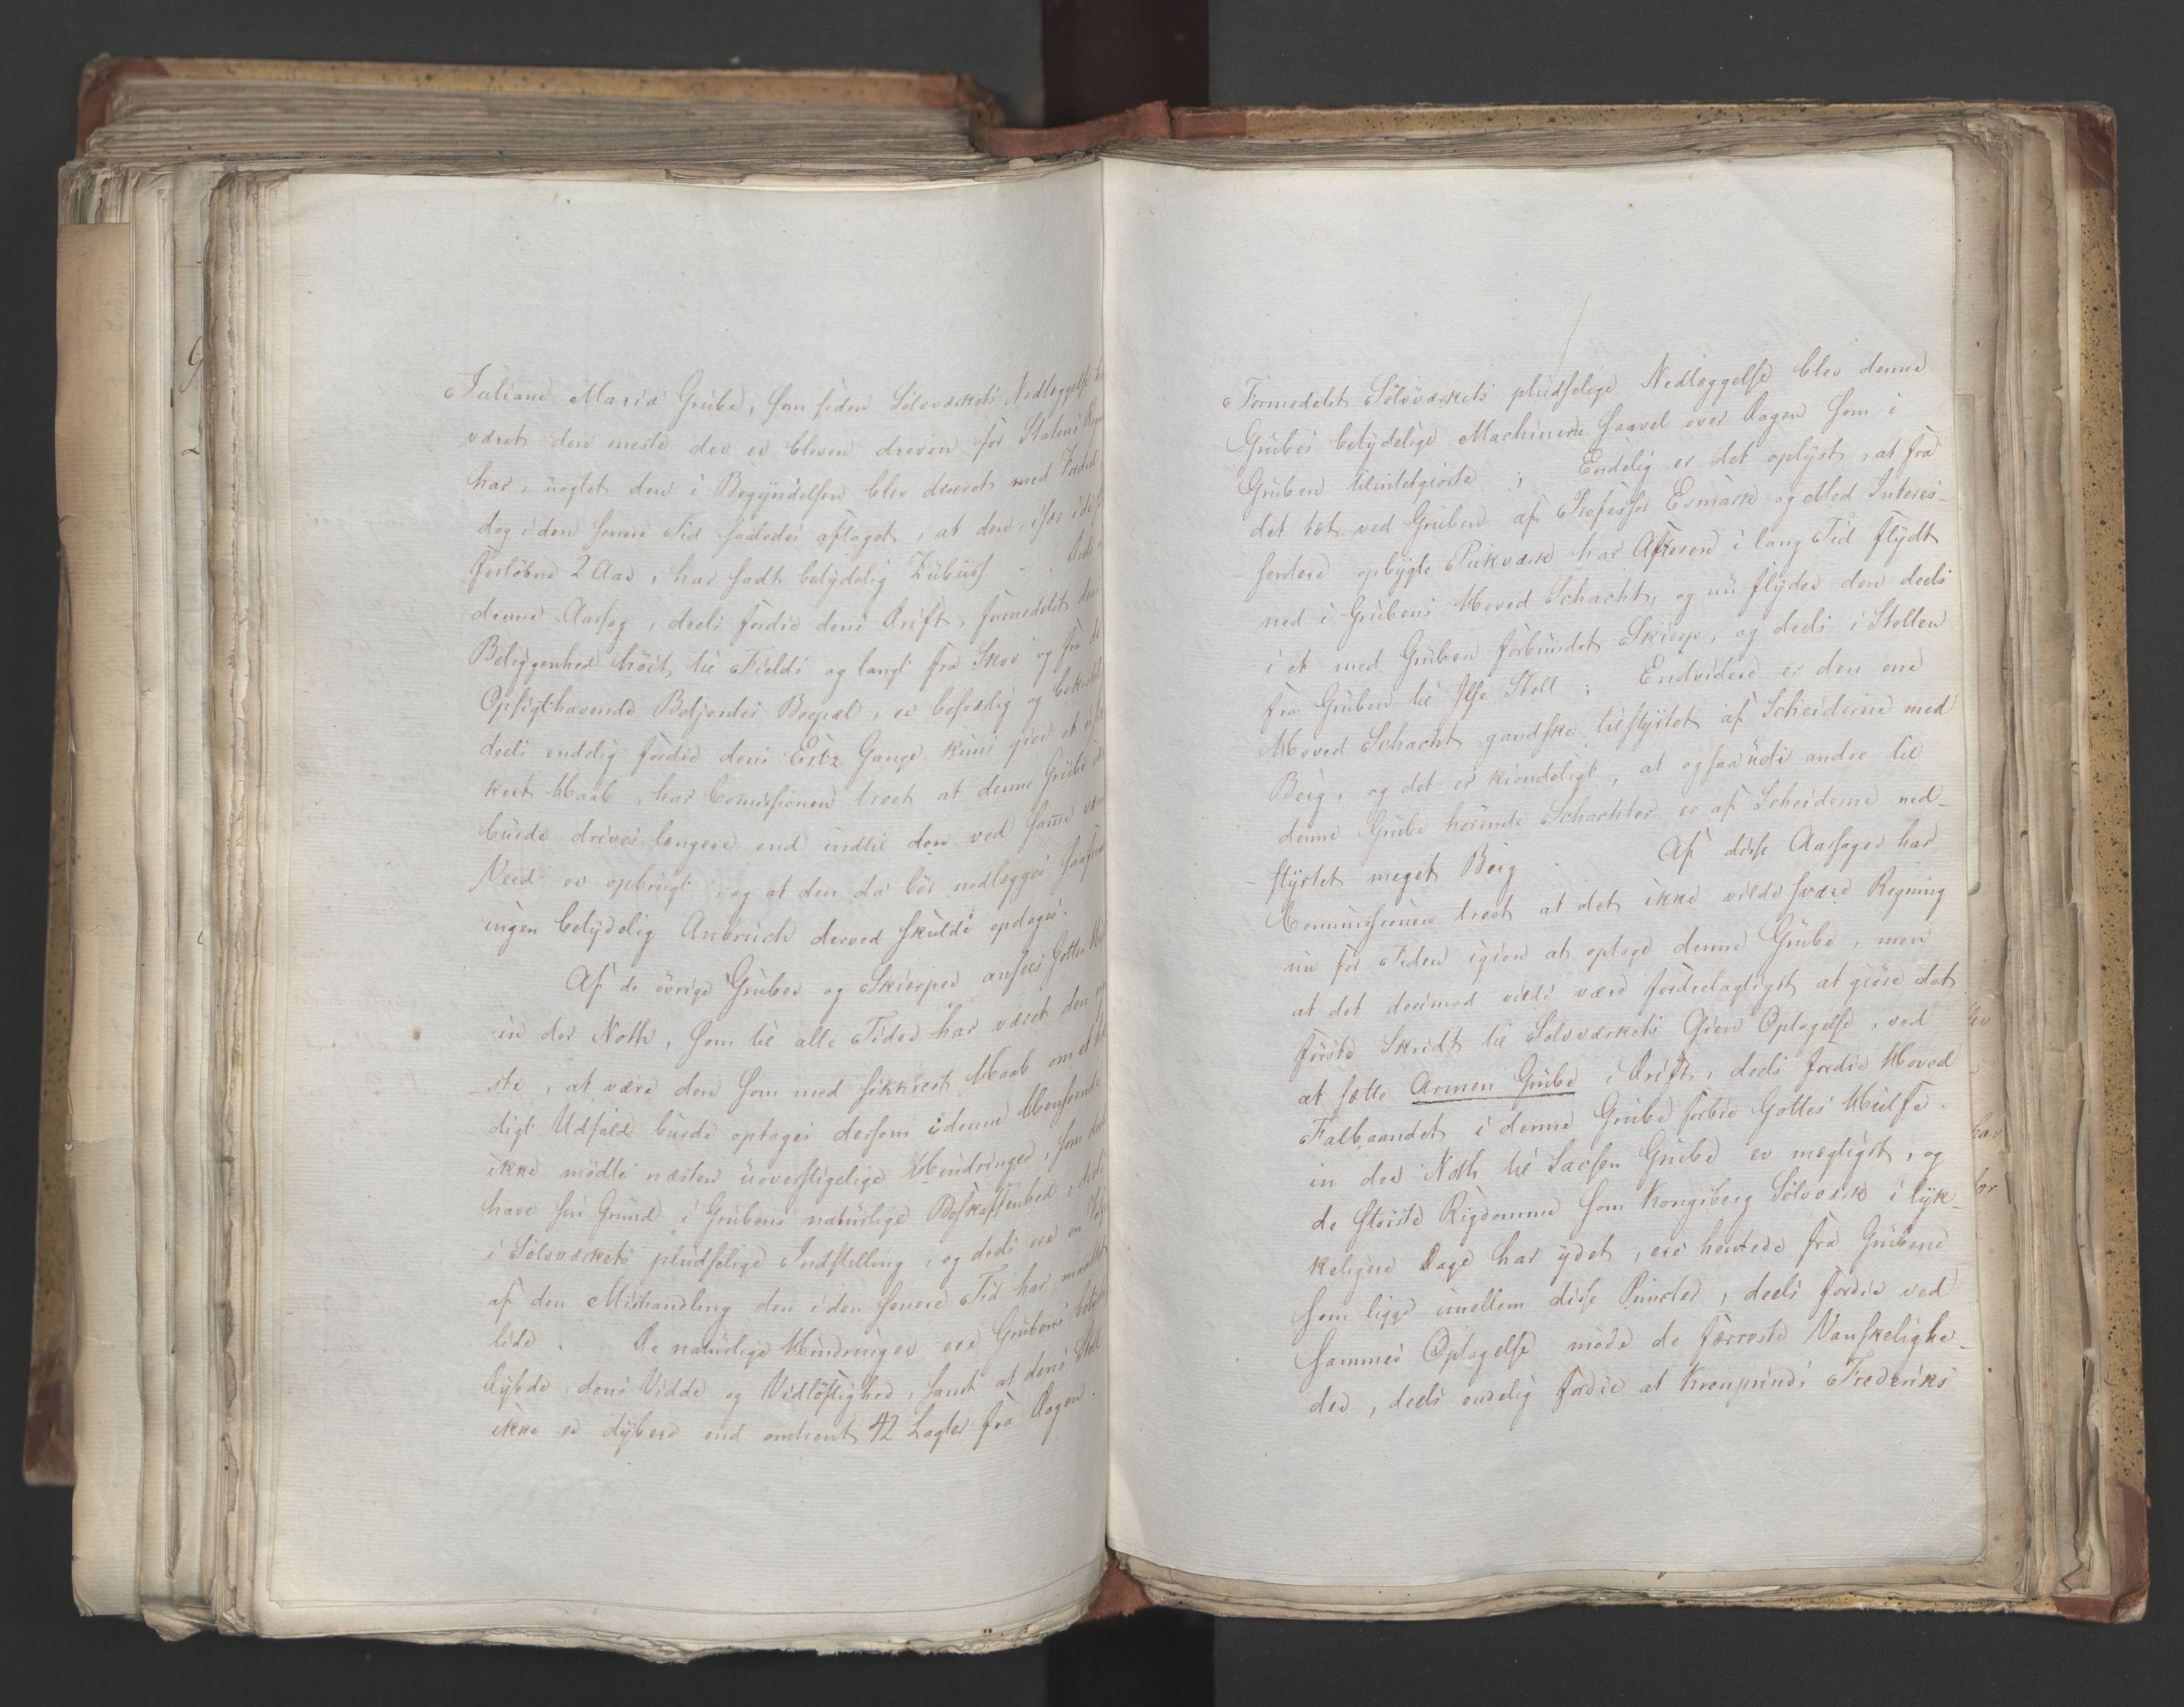 Juliane Maria Grube, som siden Sölvværkets Nedlæggelse
været den eneste der er bleven dreven for Statens
har, uagtet den i Begyndelsen blev drevet med
dog i den senere Tid saaledes aftaget, at den, især i de
forløbne 2 Aar, har havt betydelig Zubus.
denne Aarsag, deels fordie dens Drift, formedelst dens
Beliggenhed höit til Fields og langt fra Skov og fra de
Opsigthavende Betjentes Boepæl, er besværlig og
deels endelig fordie dens Ertz Gange kuns give et
kert Haab, har Commissionen troet at denne Grube
burde drives længere end indtil den ved samme
Veed er opbrugt, og at den da bör nedlægges
ingen betydelig Anbruch derved skulde opdages.
Af de övrige Gruber og Skierper ansees Gottes
in der Noth, som til alle Tider har været den
ste, at være den som med sikkrest Haab om et
digt Udfald burde optages dersom i denne Henseende
ikke mödte næsten uoverstigelige Hindringer, som
have sin Grund i Grubens naturlige Beskaffenhed, deels
i Sölvværkets pludselige Indstilling, og deels ere en
af den Mishandling den i den senere Tid har maattet
lide. De naturlige Hindringer ere Grubens
Dybde, dens Vidde og Vidlöftighed, samt at dens Stoll
ikke er dybere end omtrent 42 Lagter fra Dagen.
Formedelst Sölvværkets pludselige Nedlæggelse blev denne
Grubes betydelige Machinerie saavel over Dagen som i
Gruben tilintetgiorte; Endelig er det oplyst, at fra
det tæt ved Gruben af Professor Esmark og Med Interes-
senter opbygte Pukværk har Afteren i lang Tid flydt
ned i Grubens Hoved Schacht, og nu flyder den deels
i et med Gruben forbundet Skierp, og deels i Stollen
fra Gruben til Ilse Stoll; Endvidere er den ene
Hoved Schacht gandske tilstyrtet af Scheiderne med
Berg, og det er kiendeligt, at ogsaa udi andre til
denne Grube hörende Schachter er af Scheiderne ned-
styrtet meget Berg. Af disse Aarsager har
Commissionen troet at det ikke vilde svare Regning
nu for Tiden igien at optage denne Grube, men
at det derimod vilde være fordeelagtigst at giöre det
förste Skridt til Sölvværkets Gien Optagelse, ved
at sætte Armen Grube i Drift, deels fordie Hoved
Falbaandet i denne Grube forbie Gottes Hülfe
in der Noth til Sachsen Grube er mægtigst, og
de störste Rigdomme som Kongsberg Sölvværk i lyk-
keligere Dage har ydet, ere hentede fra Gruberne
som ligge imellem disse Puncter, deels fordie ved
sammes Optagelse möde de færreste Vanskelighe-
der, deels endelig fordie at Kronprinds Frederiks